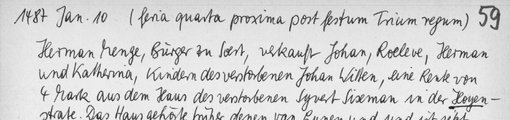 1487 Jan. 10 (feria quarta proxima post festum Trium regum) 59
Herman Menge, Bürger zu Soest, verkauft Johan, Roeleve, Herman
und Katherina, Kindern des verstorbenen Johan Witten, eine Rente von
4 Mark aus dem Haus des verstorbenen Syvert Sixeman in der Hoyen-
strate. Das Haus gehörte früher denen von Lunen und und ist jetzt